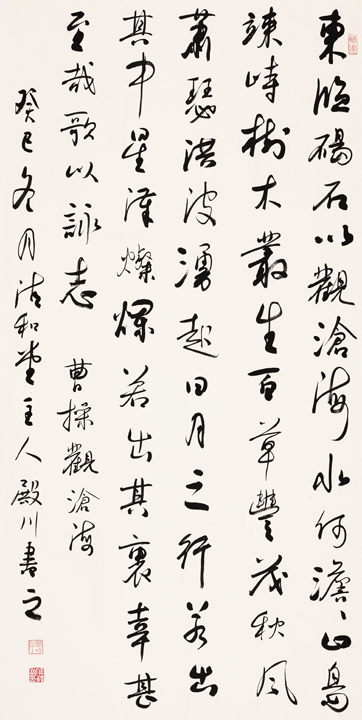 東臨碣石以觀滄海水何澹〻山島
竦峙樹木叢生百草豐茂秋風
蕭瑟洪波湧起日月之行若出
其中星漢燦爛若出其裏幸甚
至哉歌以詠志 曹操觀滄海
癸巳冬月清和堂主人殿川書之